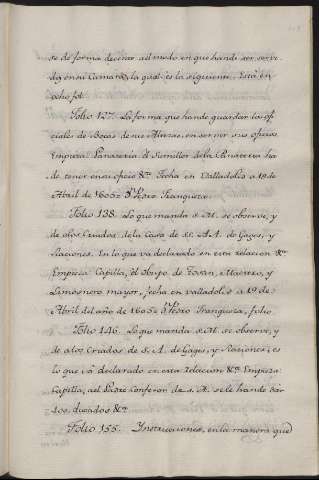 se de forma decirar
al modo en que han de ser servi-
dos en su Camara, la qual es la siguiente. Está en
ocho fol.
Folio 127. La forma que han de guardar los ofi-
ciales de Bocas de sus Altezas, en servir sus oficios
Empieza Panateria. el Sumiller de la Panateria ha
de tener en su oficio &ª. Fecha en Valladolid a 19 de
Abril de 1605= Pedro Franqueza.
Folio 138. Lo que manda S. M. se observe, y
de a los Criados de la Casa de ss. AA. de Gages, y
Raciones. En lo que va declarado en esta relacion &ª.
Empieza Capilla, el Obispo de Tovar, Maestro, y
Limosnero mayor, fecha en valladolid a 19 de
Abril del año de 1605= Pedro Franqueza, folio
Folio 146. Lo que manda S. M. se observe, y
de a los Criados de S. A. de Gages, y Raciones: es
lo que vá declarado en esta Relacion &ª. Empieza
Capilla, al Padre Confesor de S. A. se le hande dar
dos, ducados &ª.
Folio 155. Instrucciones, en la manera que